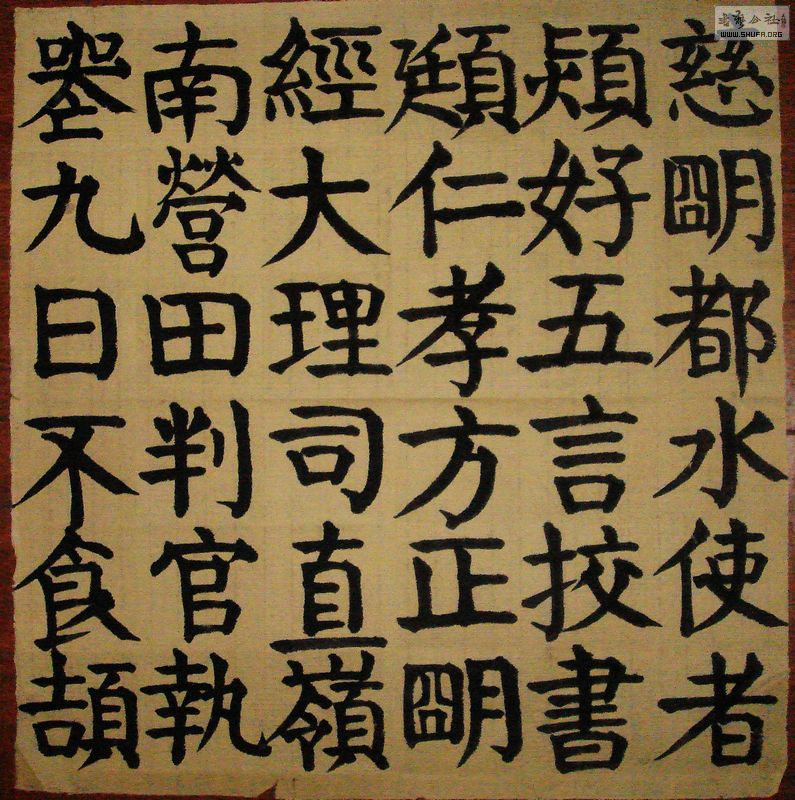 慈明都水使者
熲好五言挍書
頲仁孝方正明
經大理司直嶺
南營田判官執
喪九日不食頡
WWW.SHUFA.ORG